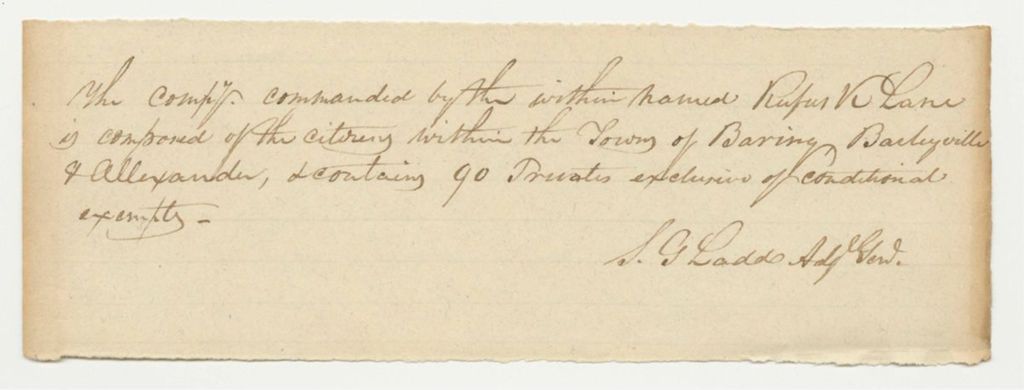 The compy. commanded by the within named Rufus K Lane
is composed of the citizens within the Towns of Baring, Baileyville
& Allexander, & contains 90 Privates exclusive of conditional
exempts -
S. G Ladd Adjt Genl.